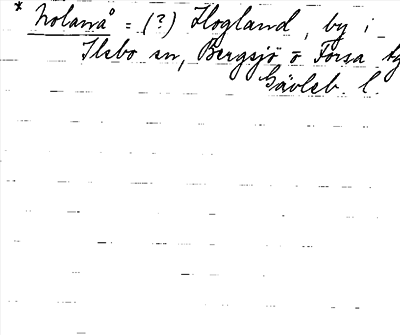 * Nolanå = (?) Hogland, by i
Ilsbo sn, Bergsjö o Forsa tg
Gävleb. l.